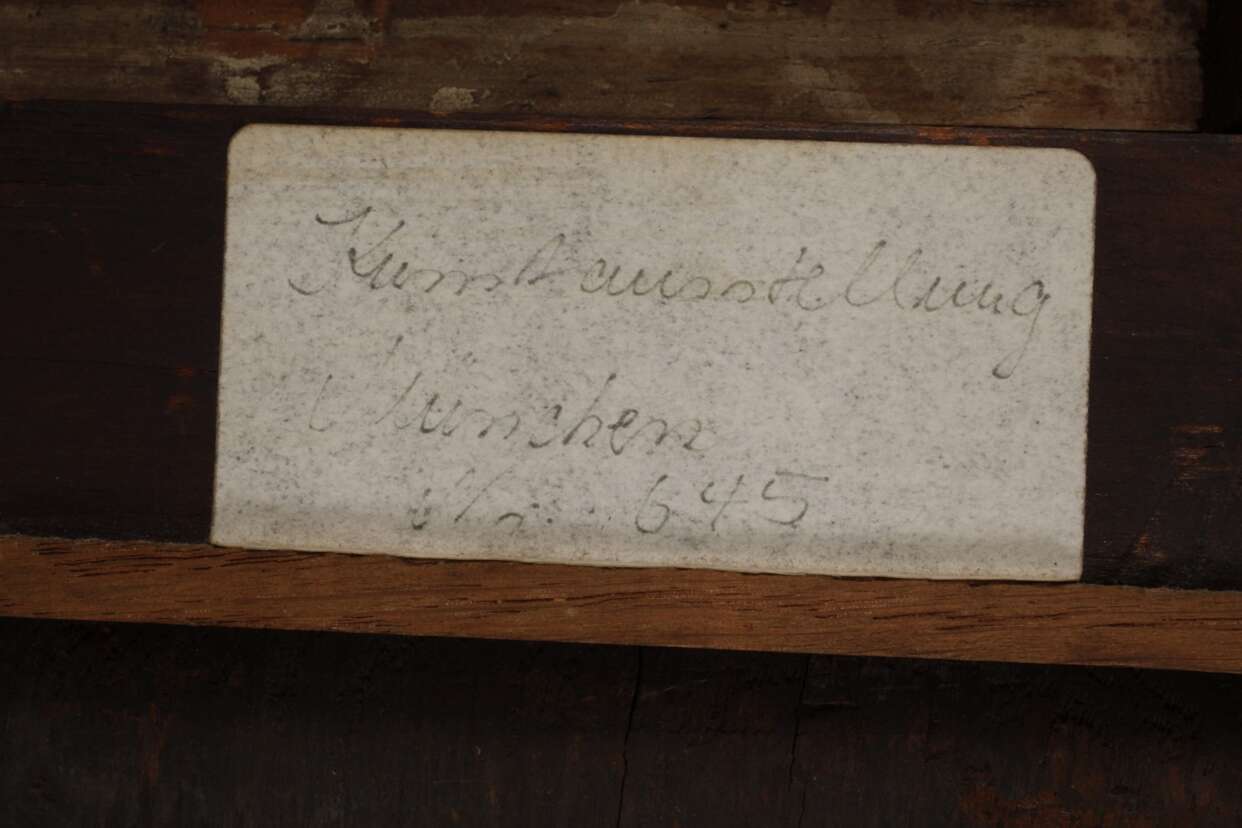 Kunstausstellung
München
645